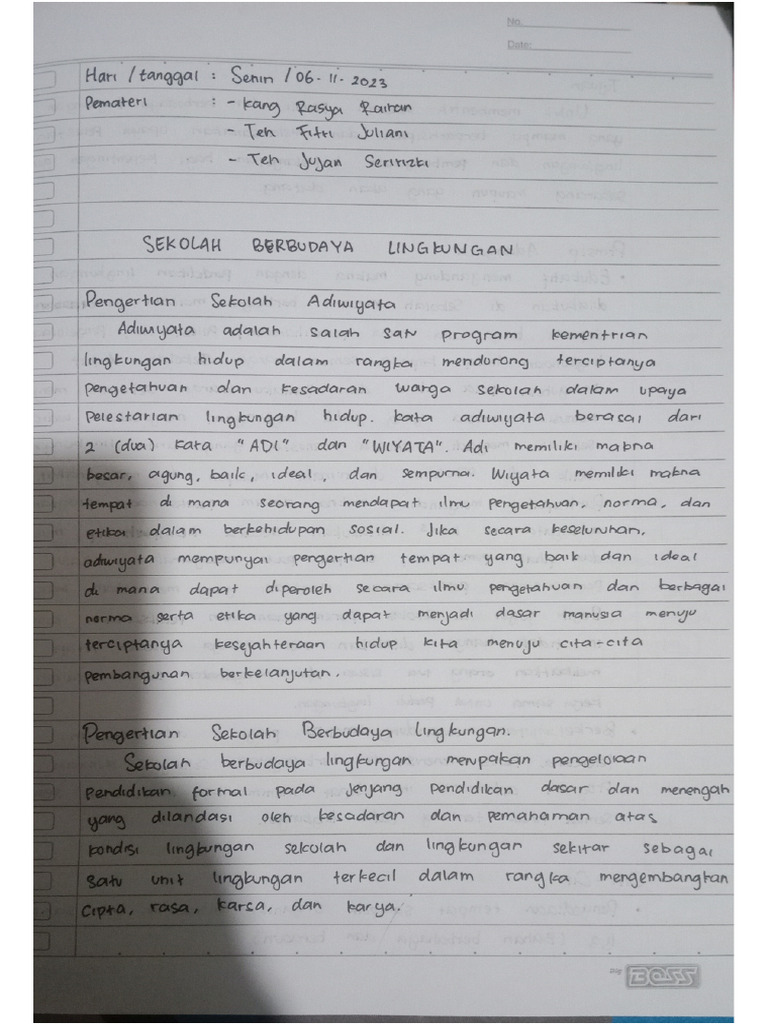 No.
Date:
Hari / tanggal : Senin / 06 - 11 - 2023
Pemateri : - Kang Rasya Raihan
- Teh Fitri Juliani
- Teh Jujan Seririzki
SEKOLAH BERBUDAYA LINGKUNGAN
Pengertian Sekolah Adiwiyata
Adiwiyata adalah salah satu program kementrian
lingkungan hidup dalam rangka mendorong terciptanya
pengetahuan dan kesadaran warga sekolah dalam upaya
pelestarian lingkungan hidup. kata adiwiyata berasal dari
2 (dua) kata "ADI" dan "WIYATA". Adi memiliki makna
besar, agung, baik, ideal, dan sempurna. Wiyata memiliki makna
tempat di mana seorang mendapat ilmu pengetahuan, norma, dan
etika dalam berkehidupan sosial. Jika secara keseluruhan,
adiwiyata mempunyai pengertian tempat yang baik dan ideal
di mana dapat diperoleh secara ilmu pengetahuan dan berbagai
norma serta etika yang dapat menjadi dasar manusia menuju
terciptanya kesejahteraan hidup kita menuju cita-cita
pembangunan berkelanjutan.
Pengertian Sekolah Berbudaya Lingkungan.
Sekolah berbudaya lingkungan merupakan pengelolaan
pendidikan formal pada jenjang pendidikan dasar dan menengah
yang dilandasi oleh kesadaran dan pemahaman atas
kondisi lingkungan sekolah dan lingkungan sekitar sebagai
satu unit lingkungan terkecil dalam rangka mengembangkan
cipta, rasa, karsa, dan karya.
Big BOSS